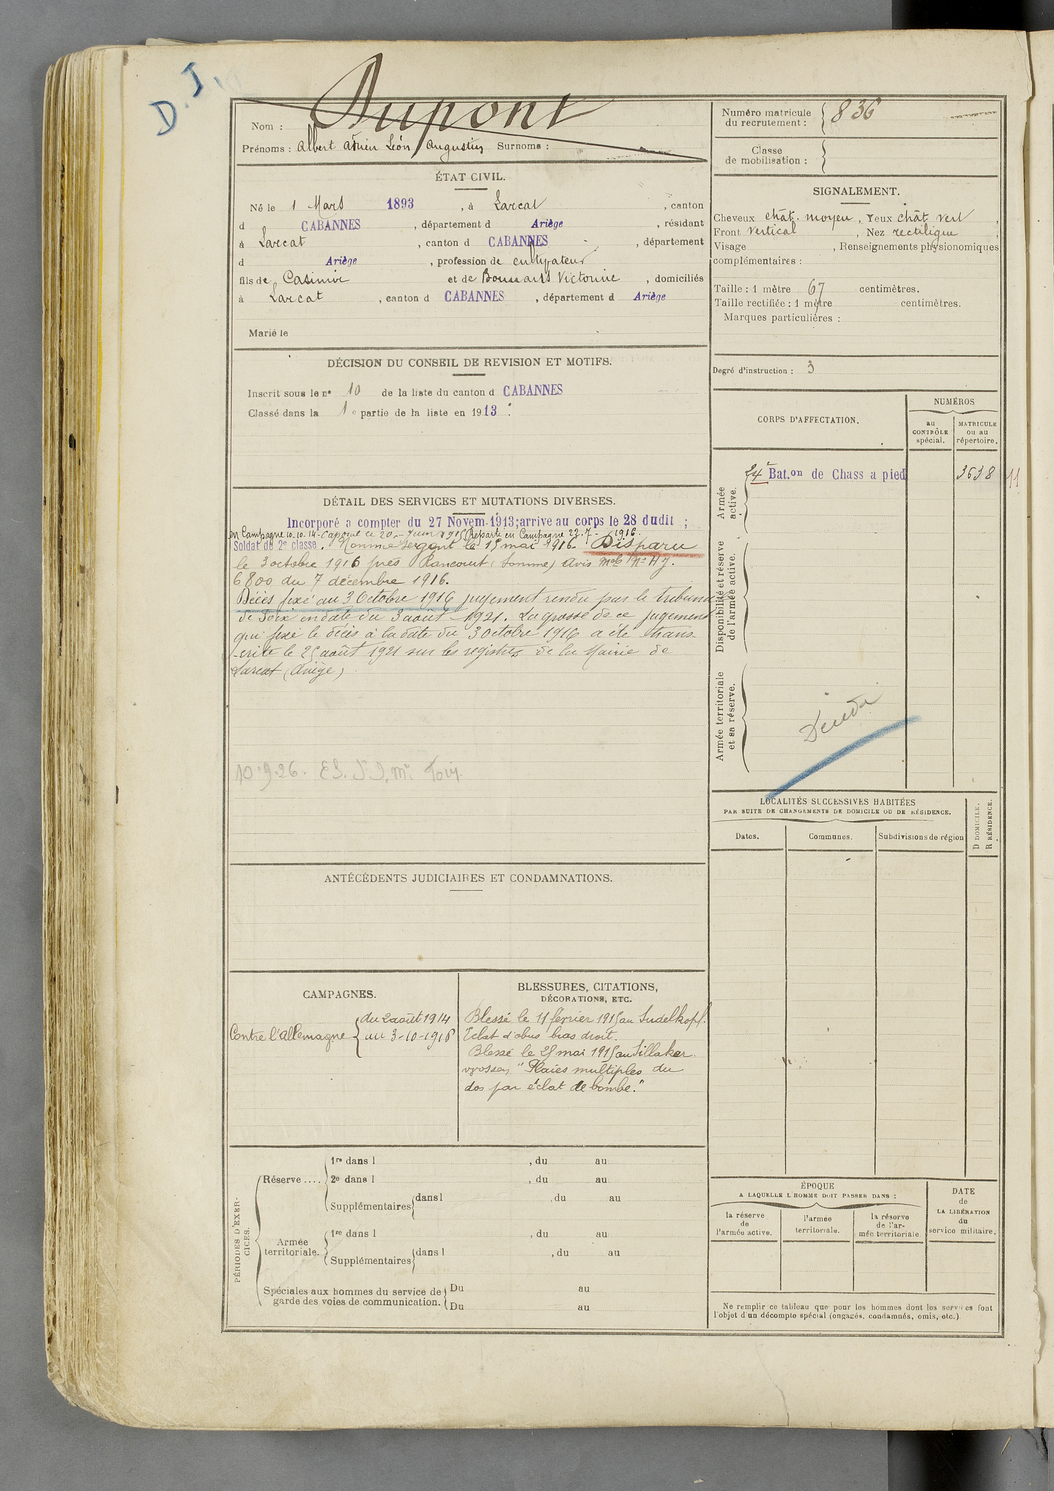 D.I.
Dupont
Nom :
Prénoms : Albert Adrien Léon Augustin Surnoms :
ÉTAT CIVIL.
Né le 1 Mars 1893, à Larcat, canton
d CABANNES, département d Ariège, résidant
à Larcat, canton d CABANNES, département
d Ariège, profession de cultivateur
fils de Casimir et de Bonnans Victorine, domiciliés
à Larcat, canton d CABANNES, département d Ariège
Marié le
DÉCISION DU CONSEIL DE REVISION ET MOTIFS.
Inscrit sous le n° 10 de la liste du canton d CABANNES
Classé dans la 1e partie de la liste en 1913.
DÉTAIL DES SERVICES ET MUTATIONS DIVERSES.
Incorporé a compter du 27 Novem. 1913; arrive au corps le 28 dudit ;
en Campagne 10.10.14 - Caporal le 20 - Juin 1915 (Reparti en Campagne 23.7.1916.
Soldat de 2e classe, Nommé Sergent le 15 mai 1916. Disparu
le 3 octobre 1916 près Rancourt (Somme) Avis
6800 du 7 décembre 1916.
Décès fixé au 3 Octobre 1916 jugement rendu par le tribunal
de Foix en date du 3 août 1921. La grosse de ce jugement
qui fixe le décès à la date du 3 Octobre 1916 a été trans
crite le 25 août 1921 sur les registres de la Mairie de
Larcat (Ariège)
10.9.26.
ANTÉCÉDENTS JUDICIAIRES ET CONDAMNATIONS.
CAMPAGNES.
Contre l'Allemagne { du 2 août 1914
au 3-10-1916
BLESSURES, CITATIONS,
DÉCORATIONS, ETC.
Blessé le 11 février 1915 au Sudelkopf.
Eclat d'obus bras droit.
Blessé le 25 mai 1915 au Sillaker
wassen "Plaies multiples du
dos par éclat de bombe."
PÉRIODES D'EXERCICES.
Réserve.... 1re dans l , du au
2e dans l , du au
Supplémentaires dans l , du au
Armée territoriale. 1re dans l , du au
Supplémentaires dans l , du au
Spéciales aux hommes du service de garde des voies de communication. Du au
Du au
Numéro matricule
du recrutement : 836
Classe
de mobilisation :
SIGNALEMENT.
Cheveux chât. moyen, Yeux chât vert,
Front vertical, Nez rectiligne
Visage , Renseignements physionomiques
complémentaires :
Taille : 1 mètre 67 centimètres.
Taille rectifiée : 1 mètre centimètres.
Marques particulières :
Degré d'instruction : 3
CORPS D'AFFECTATION.
NUMÉROS
au
CONTRÔLE
spécial.
MATRICULE
ou au
répertoire.
Armée
active.
24e Bat.on de Chass a pied 3638
Disponibilité et réserve
de l'armée active.
Armée territoriale
et sa réserve.
LOCALITÉS SUCCESSIVES HABITÉES
PAR SUITE DE CHANGEMENTS DE DOMICILE OU DE RÉSIDENCE.
D DOMICILE.
R RÉSIDENCE.
Dates.
Communes.
Subdivisions de région
ÉPOQUE
A LAQUELLE L'HOMME DOIT PASSER DANS :
la réserve
de
l'armée active.
l'armée
territoriale.
la réserve
de l'ar-
mée territoriale
DATE
de
LA LIBÉRATION
du
service militaire.
Ne remplir ce tableau que pour les hommes dont les services font
l'objet d'un décompte spécial (engagés, condamnés, omis, etc.)